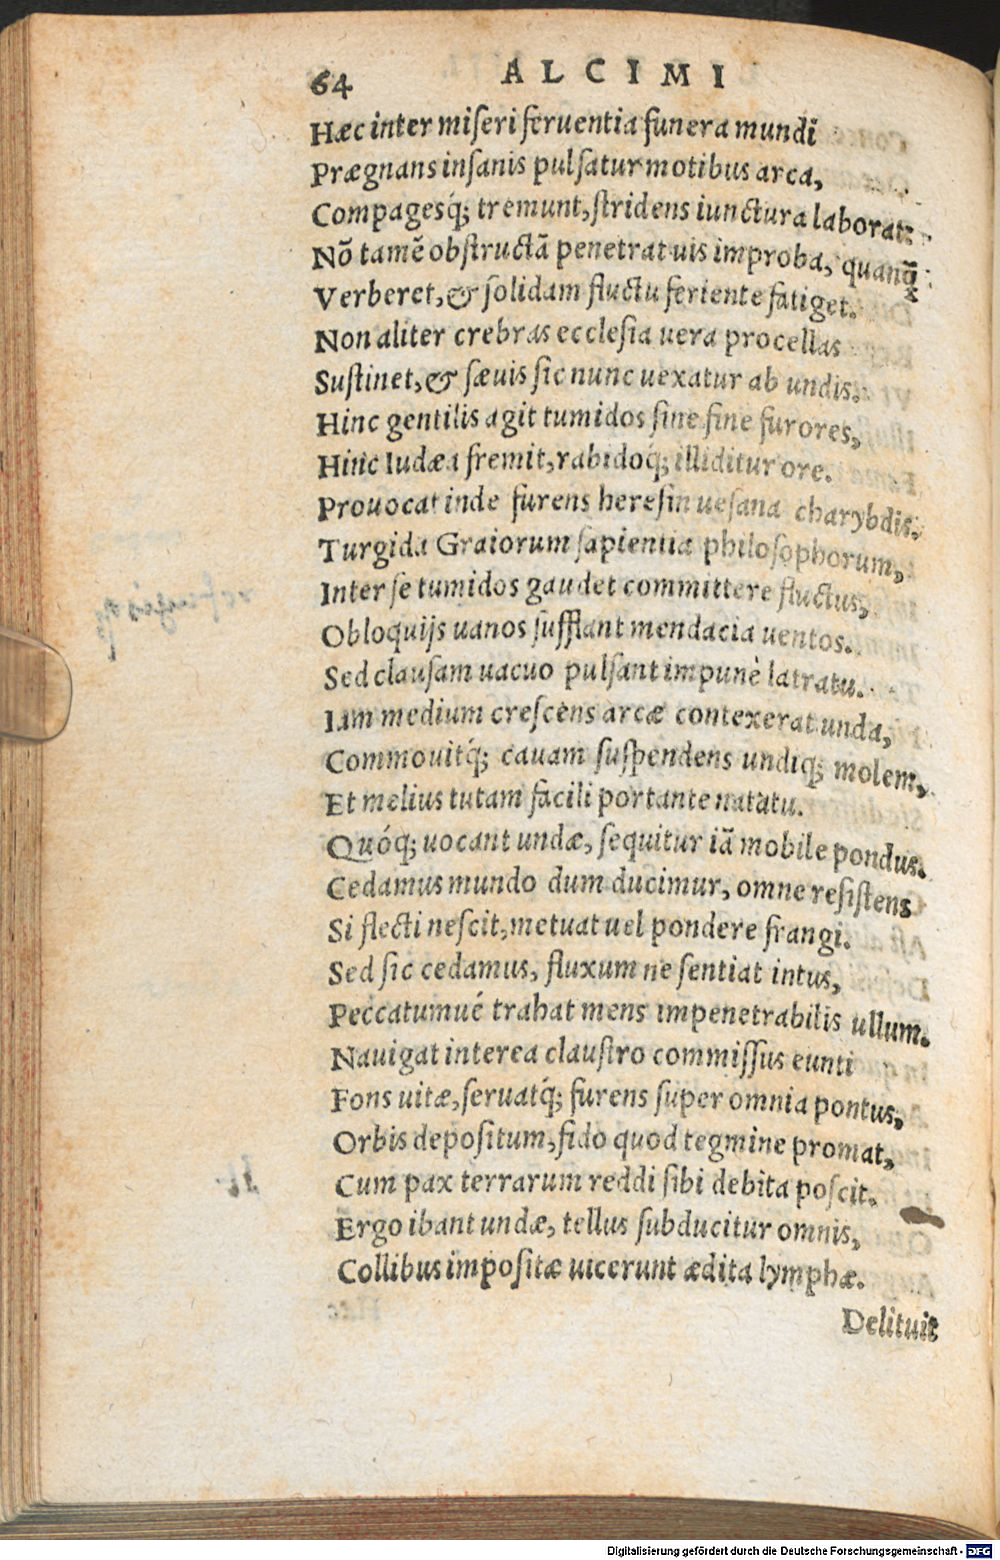 64 ALCIMI
Hæc inter miſeri feruentia funera mundi
Prægnans inſanis pulſatur motibus arca,
Compagesq́; tremunt, ſtridens iunctura laborat:
Nõ tamẽ obſtructã penetrat uis improba, quanq̃
Verberet, & ſolidam fluctu feriente fatiget.
Non aliter crebras eccleſia uera procellas
Suſtinet, & ſæuis ſic nunc uexatur ab undis.
Hinc gentilis agit tumidos ſine fine furores,
Hinc Iudæa fremit, rabidoq́; illiditur ore.
Prouocat inde furens hereſin ueſana charybdis.
Turgida Graiorum ſapientia philoſophorum,
Inter ſe tumidos gaudet committere fluctus,
Obloquijs uanos ſufflant mendacia uentos.
Sed clauſam uacuo pulſant impunè latratu.
Iam medium creſcens arcæ contexerat unda,
Commouitq́; cauam ſuſpendens undiq; molem,
Et melius tutam facili portante natatu.
Quóq; uocant undæ, ſequitur iã mobile pondus.
Cedamus mundo dum ducimur, omne reſiſtens
Si flecti neſcit, metuat uel pondere frangi.
Sed ſic cedamus, fluxum ne ſentiat intus,
Peccatumué trahat mens impenetrabilis ullum.
Nauigat interea clauſtro commiſſus eunti
Fons uitæ, ſeruatq́; furens ſuper omnia pontus,
Orbis depoſitum, fido quod tegmine promat,
Cum pax terrarum reddi ſibi debita poſcit.
Ergo ibant undæ, tellus ſubducitur omnis,
Collibus impoſitæ uicerunt ædita lymphæ.
Delituit
Digitalisierung gefördert durch die Deutsche Forschungsgemeinschaft - DFG